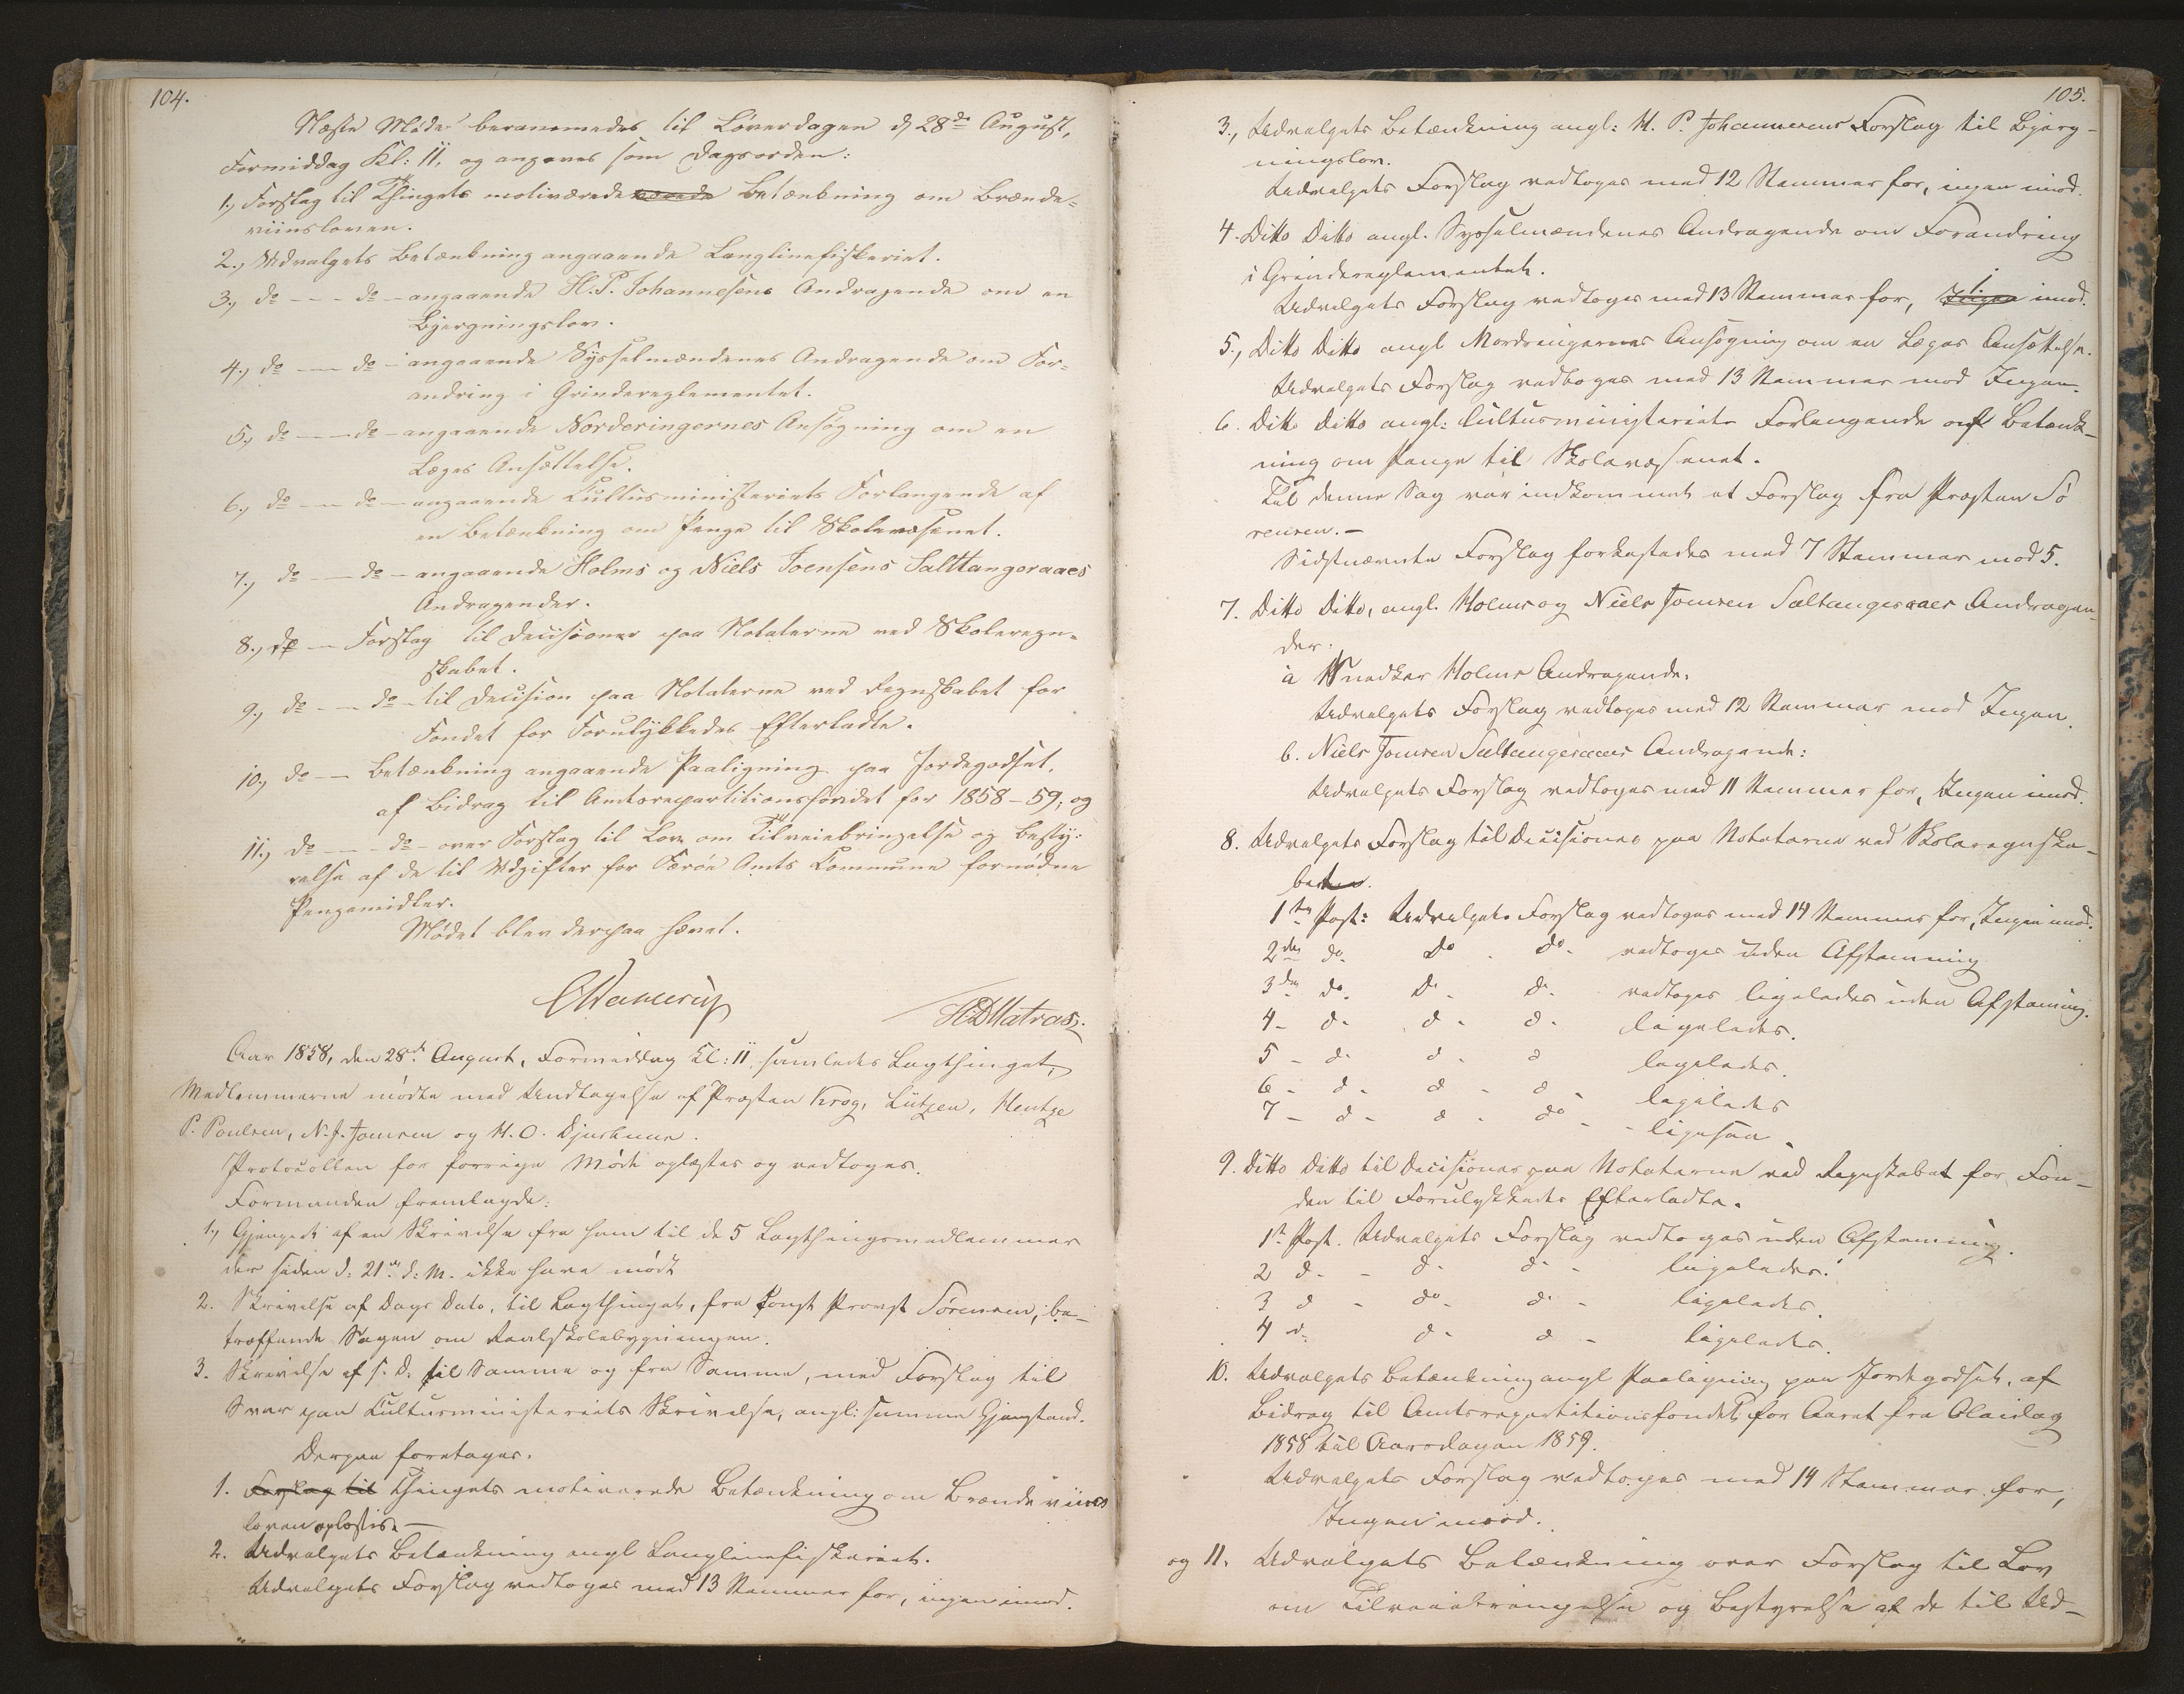 104.
Næste Møde berammedes til Løverdagen d 28de August,
Formiddag Kl: 11, og angaves som Dagsorden:
1., Forslag til Thingets motiverede Betænkning om Brænde=
viinsloven.
2., Udvalgets Betænkning angaaende Langlinefiskeriet.
3., do - - - do - angaaende H. P. Johannesens Andragende om en
Bjergningslov.
4., do - - do - angaaende Sysselmændenes Andragende om For=
andring i Grindereglementet.
5., do - - do - angaaende Norderingernes Ansøgning om en
Læges Ansættelse.
6., do - - do - angaaende Cultusministeriets Forlangende af
en Betænkning om Penge til Skolevæsenet.
7., do - - do - angaaende Holms og Niels Joensens Salttangeraaes
Andragender.
8., do - Forslag til Decisioner paa Notaterne ved Skoleregn=
skabet.
9., do - - do - til Decision paa Notaterne ved Regnskabet for
Fondet for Forulykkedes Efterladte.
10., do - - Betænkning angaaende Paaligning paa Jordegodset,
af Bidrag til Amtsrepartitionsfondet for 1858-59, og
11., do - - do - over Forslag til Lov om Tilveiebringelse og Besty=
relse af de til Udgifter for Færöe Amts Commune fornødne
Pengemidler.
Mødet blev derpaa hævet.
CDahlerup
HDMatras.
Aar 1858, den 28de August, Formiddag Kl: 11 samledes Lagthinget,
Medlemmerne mødte med Undtagelse af Præsten Krog, Lützen, Hentze
P. Poulsen, N. J. Joensen og H. O. Djurhuus.
Protocollen for forrige Møde oplæstes og vedtoges.
Formanden fremlagde:
1., Gjenpart af en Skrivelse fra ham til de 5 Lagthingsmedlemmer
der siden d. 21de d: M. ikke have mødt
2. Skrivelse af Dags Dato, til Lagthinget, fra const Provst Sørensen, be-
træffende Sagen om Realskolebygningen.
3. Skrivelse af s. D. til Samme og fra Samme, med Forslag til
Svar paa Cultusministeriets Skrivelse, angl: samme Gjenstand.
Derpaa foretoges.
1. Forslag til Thingets motiverede Betænkning om Brændeviins
loven oplæstes. -
2. Udvalgets Betænkning angl Langlinefiskeriet.
Udvalgets Forslag vedtoges med 13 Stemmer for, ingen imod.
105.
3., Udvalgets Betænkning angl: H. P. Johannesens Forslag til Bjerg-
ningslov.
Udvalgets Forslag vedtoges med 12 Stemmer for, ingen imod.
4. Ditto Ditto angl. Sysselmændenes Andragende om Forandring
i Grindereglementet.
Udvalgets Forslag vedtoges med 13 Stemmer for, Ingen 1. imod.
5., Ditto Ditto angl Nordringernes Ansøgning om en Læges Ansættelse.
Udvalgets Forslag vedtoges med 13 Stemmer mod Ingen.
6. Ditto Ditto angl: Cultusministeriets Forlangende af Betænk-
ning om Penge til Skolevæsenet.
Til denne Sag var indkommet et Forslag fra Præsten Sö
rensen. -
Sidstnævnte Forslag forkastedes med 7 Stemmer mod 5.
7. Ditto Ditto, angl. Holms og Niels Joensen Saltangeraaes Andragen-
der.
a Snedker Holms Andragende.
Udvalgets Forslag vedtoges med 12 Stemmer mod Ingen.
b. Niels Joensen Saltangeraaes Andragende:
Udvalgets Forslag vedtoges med 11 Stemmer for, Ingen imod.
8. Udvalgets Forslag til Decisioner paa Notaterne ved Skoleregnska-
bet.
1ste Post: Udvalgets Forslag vedtoges med 14 Stemmer for, Ingen imod.
2den do. Do. do. vedtoges uden Afstemning
3die do. Do. do. vedtoges ligeledes uden Afstemning.
4 - do. do. do. ligeledes.
5 - do. do. do ligeledes.
6 - do. do - do - ligeledes
7 - do - do. do - - ligesaa.
9. Ditto Ditto til Decisioner paa Notaterne ved Regnskabet for Fon-
den til Forulykkedes Efterladte.
1ste Post. Udvalgets Forslag vedtoges uden Afstemning.
2 do. - do. do. - ligeledes.
3 do - do. do. - ligeledes.
4 do. do. do - ligeledes.
10. Udvalgets Betænkning angl Paaligning paa Jordegodset, af
Bidrag til Amtsrepartitionsfondet for Aaret fra Olaidag
1858 til Aarsdagen 1859.
Udvalgets Forslag vedtoges med 14 Stemmer for,
Ingen imod.
og 11. Udvalgets Betænkning over Forslag til Lov
om Tilveiebringelse og Bestyrelse af de til Ud-